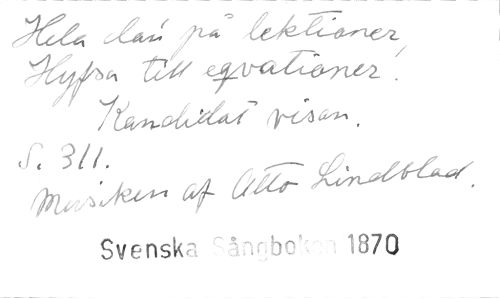 Hela dan på lektioner,
Hyfsa till eqvationer!
Kandidat visan.
S. 311.
Musiken af Otto Lindblad.
Svenska Sångboken 1870